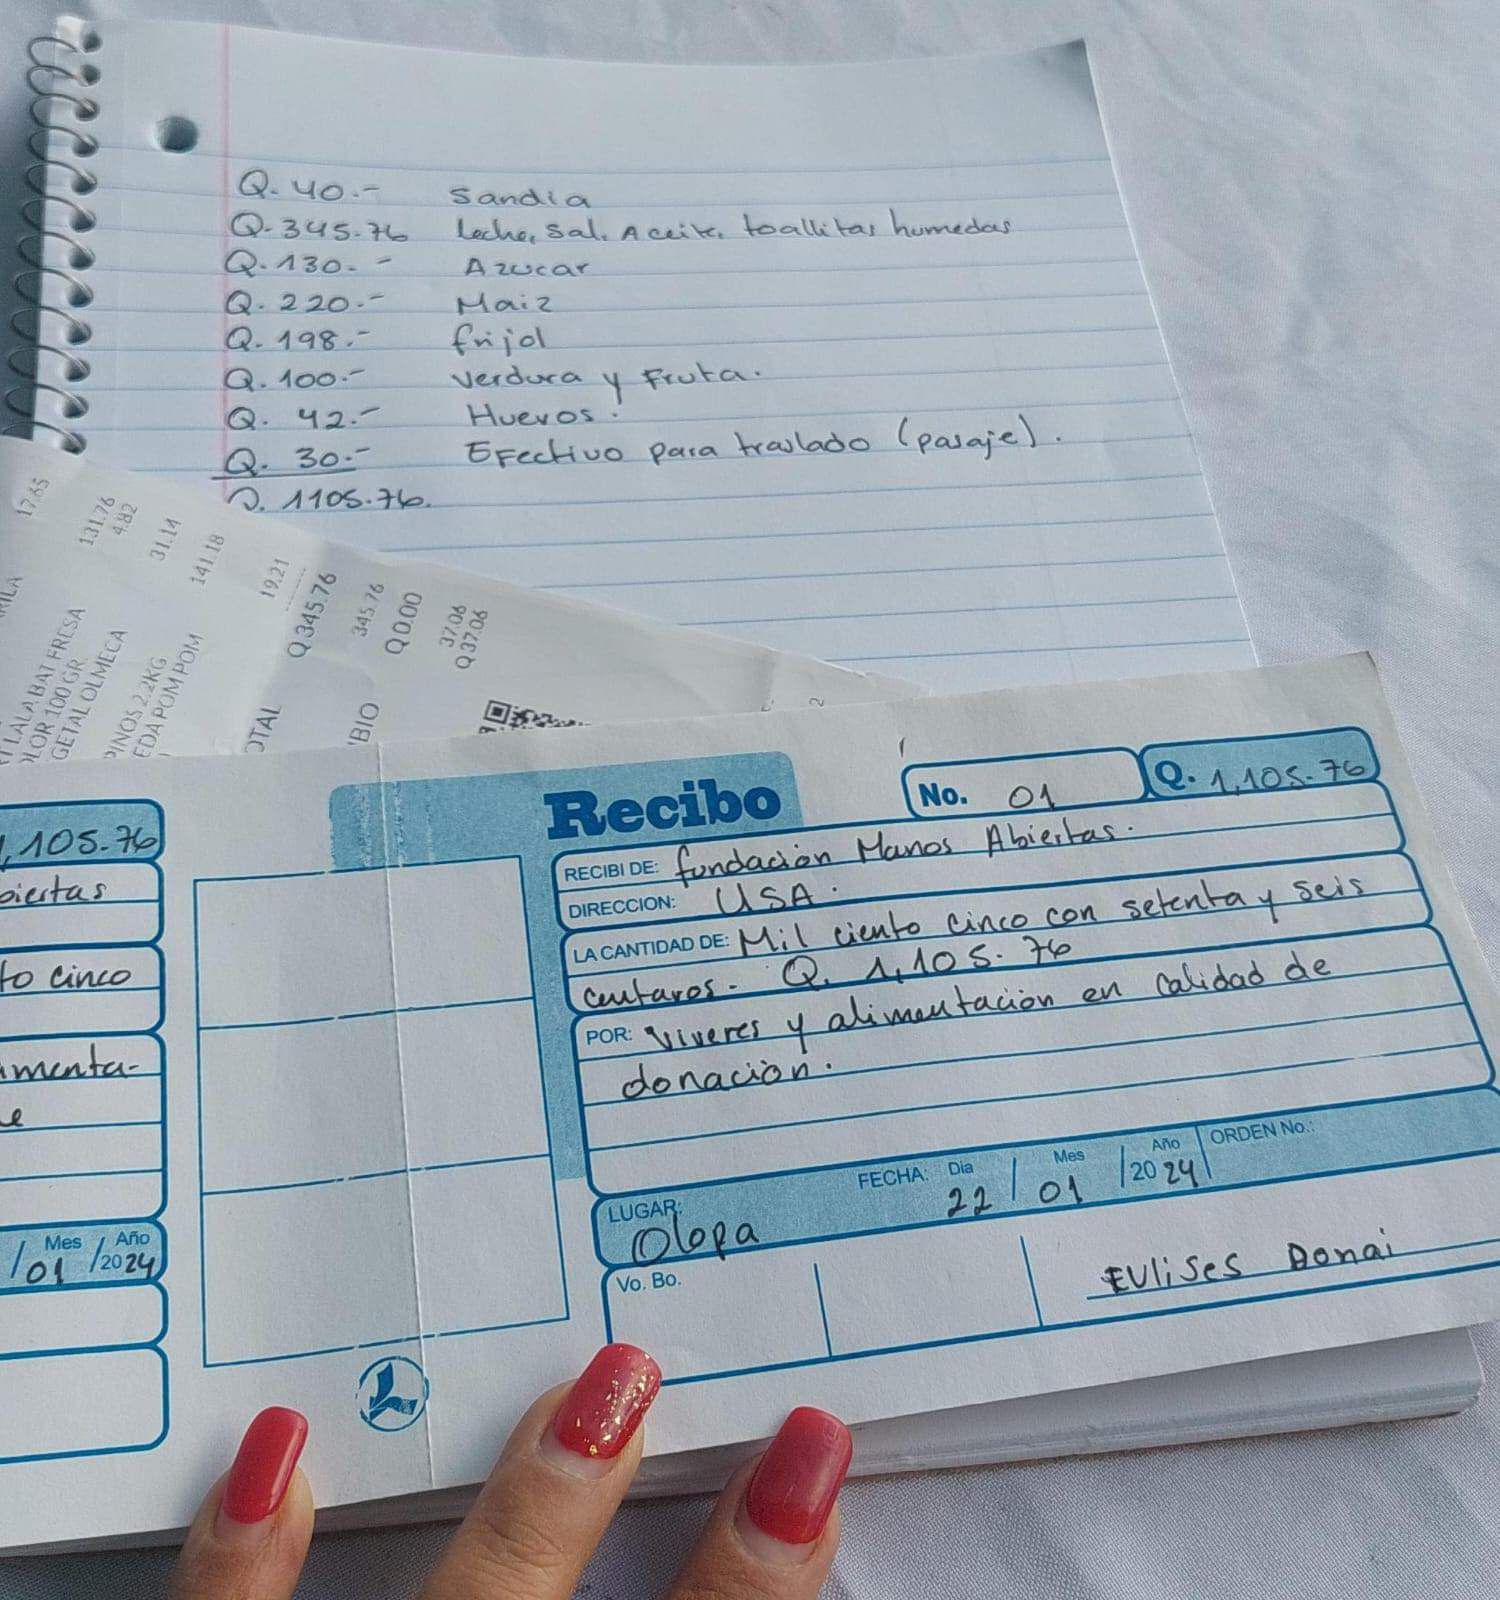 Q. 40.- Sandia
Q. 345.76 Leche, Sal, Aceite, toallitas humedas
Q. 130.- Azucar
Q. 220.- Maiz
Q. 198.- frijol
Q. 100.- verdura y Fruta.
Q. 42.- Huevos.
Q. 30.- Efectivo para traslado (pasaje).
Q. 1105.76.
17.65
131.76
4.82
31.14
141.18
19.21
LALA BAT FRESA
100 GR
GETAL OLMECA
PINOS 2.2KG
EDA POM POM
OTAL Q 345.76
345.76
BIO Q 0.00
37.06
Q 37.06
1,105.76
biertas
to cinco
menta-
e
Mes Año
/01 /2024
Recibo
No. 01 Q. 1,105.76
RECIBI DE: fundación Manos Abiertas.
DIRECCION: USA.
LA CANTIDAD DE: Mil ciento cinco con setenta y seis
centavos- Q. 1,105.76
POR: Viveres y alimentación en calidad de
donación.
LUGAR: Olopa FECHA: Dia 22 / Mes 01 / Año 2024 ORDEN No.:
Vo. Bo.
Eulises Donai